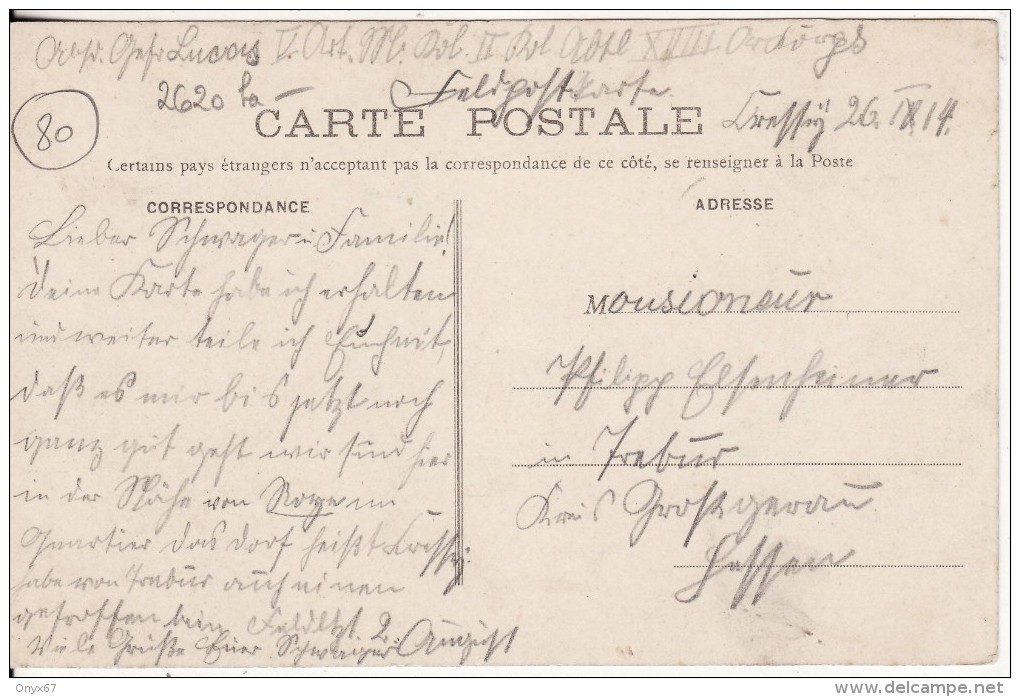 Absr. Gefr Lucas V. Art. M. Kol. II Kol Abtl XVIII Arkorps
2620
Feldpostkarte
80
CARTE POSTALE
Cressÿ 26. IX. 14.
Certains pays étrangers n'acceptant pas la correspondance de ce côté, se renseigner à la Poste
CORRESPONDANCE
ADRESSE
Lieber Schwager u Familie!
Deine Karte habe ich erhalten
und weiter teile ich Euch mit,
daß es mir bis jetzt noch
ganz gut geht wir sind hier
in der Nähe von Roye im
Quartier das Dorf heißt Cressÿ
habe von Trebur auch einen
getroffen beim
Viele Grüße Euer Schwager August
Mousioneur
Philipp Elsenheimer
in Trebur
Kreis Großgerau
Hessen
Onyx67
delcampe.net